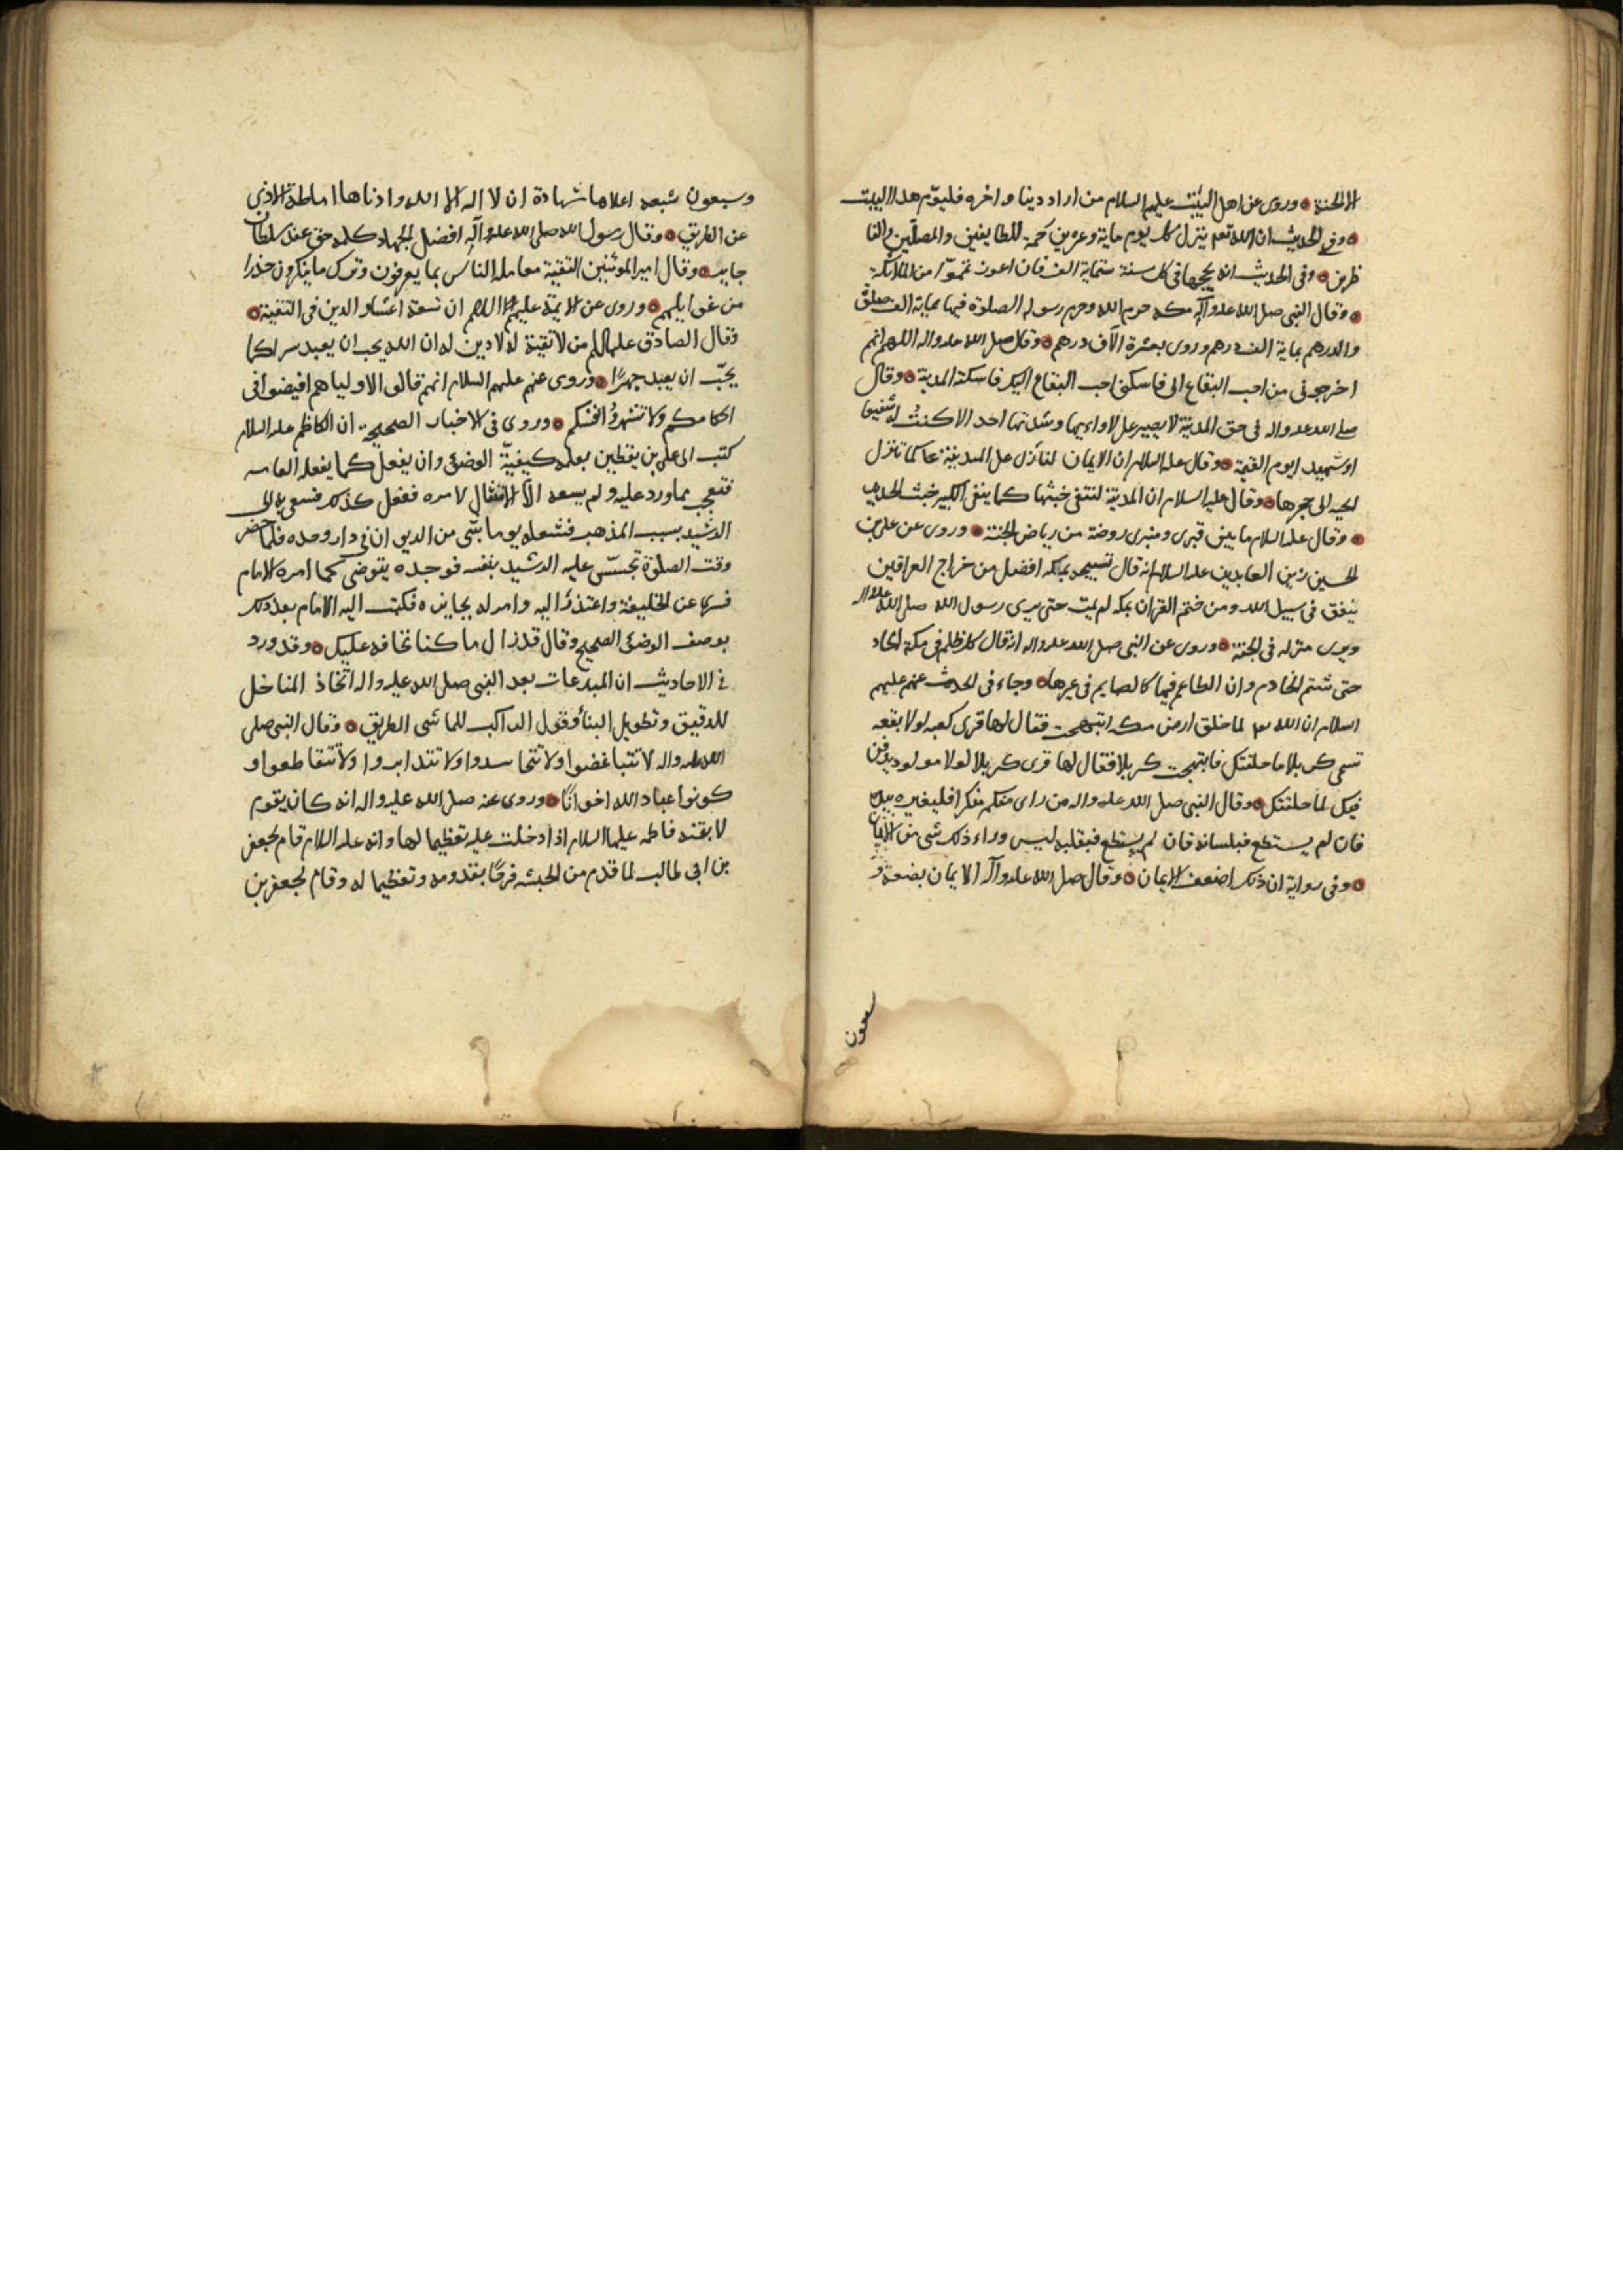 الا الجنة وروى عن اهل البيت عليهم السلام من اراد دينا واخره فليؤم هذا البيت
وفي الحديث ان الله تعه ينزل كل يوم ماية وعشرين رحمة للطايفين والمصلين والنا
ظرين وفي الحديث انه يحجها في كل سنة ستماية الف فان اعوز تمموا من الملائكة
وقال النبي صلى الله عليه وآله مكه حرم الله وحرم رسوله الصلوة فيها بماية الف صلوة
والدرهم بماية الف درهم وروى بعشرة الآف درهم وقال صلى الله عليه واله اللهم انهم
اخرجوني من احب البقاع الى فاسكني احب البقاع اليك فاسكنه المدينة وقال
صلى الله عليه واله في حق المدينة لا يصبر على لاواءيها وشدتها احد الا كنت له شفيعا
او شهيدا يوم القيمة وقال عليه السلام ان الايمان لتأزل على المدينة كما تازل
الحيه الى جحرها وقال عليه السلام ان المدينة لتنفي خبثها كما ينفي الكير خبث الحديد
وقال عليه السلام ما بين قبرى ومنبرى روضة من رياض الجنة وروى عن على بن
الحسين زين العابدين عليه السلام انه قال تسبيحه بمكه افضل من خراج العراقين
ينفق في سبيل الله ومن ختم القران بمكه لم يمت حتى يرى رسول الله صلى الله عليه واله
ويرى منزله في الجنة وروى عن النبي صلى الله عليه واله انه قال كل ظلم في مكة الحاد
حتى شتم الخادم وان الطاعم فيها كالصايم في غيرها وجاء في الحديث عنهم عليهم
السلام ان الله تعه لما خلق ارض مكه ابتهجت فقال لها قرى كعبه لولا بقعه
تسمى كربلا ما خلقتك فابتهجت كربلا فقال لها قرى كربلا لولا مولود يدفن
فيك لما خلقتك وقال النبي صلى الله عليه واله من راى منكم منكرا فليغيره بيده
فان لم يستطع فبلسانه فان لم يستطع فبقلبه ليس وراء ذلك شى من الايمان
وفي رواية ان ذلك اضعف الايمان وقال صلى الله عليه وآله الايمان بضعة و
سبعون
وسبعون شعبه اعلاها شهادة ان لا اله الا الله وادناها اماطة الاذى
عن الطريق وقال رسول الله صلى الله عليه وآله افضل الجهاد كلمه حق عند سلطان
جاير وقال امير المومنين التقية معامله الناس بما يعرفون وترك ما ينكرون حذرا
من غوايلهم وروى عن الايمة عليهم السلام ان تسعة اعشار الدين في التقية
وقال الصادق عليه السلم من لا تقية له لا دين له ان الله يحب ان يعبد سرا كما
يحبّ ان يعبد جهرًا وروى عنهم عليهم السلام انهم قالوا لاولياهم افيضوا في
احكامكم ولا تشهروا انفسكم وروى في الاخبار الصحيحة ان الكاظم عليه السلام
كتب الى على بن يقطين بعلمه كيفيّة الوضوء وان يفعل كما يفعله العامه
فتعجب بما ورد عليه ولم يسعه الا الامتثال لامره ففعل كذلك فسعى به الى
الرشيد بسبب المذهب فشغله يوما بشى من الديوان في دار وحده فلما حضر
وقت الصلوة تجسّس عليه الرشيد بنفسه فوجده يتوضى كما امره الامام
فسرى عن الخليفة واعتذر اليه وامر له بجايزه فكتب اليه الامام بعد ذلك
بوصف الوضوء الصحيح وقال قد زال ما كنا نخافه عليك وقد ورد
في الاحاديث ان المبدعات بعد النبي صلى الله عليه واله اتخاذ المناخل
للدقيق وتطويل البناء وقول الراكب للماشى الطريق وقال النبي صلى
الله عليه واله لا تتباغضوا ولا تتحاسدوا ولا تتدابروا ولا تتقاطعوا و
كونوا عباد الله اخوانًا وروى عنه صلى الله عليه واله انه كان يقوم
لابنته فاطمه عليها السلام اذا دخلت عليه تعظيما لها وانه عليه السلام قام لجعفر
بن ابي طالب لما قدم من الحبشه فرحًا بقدومه وتعظيما له وقام لجعفر بن